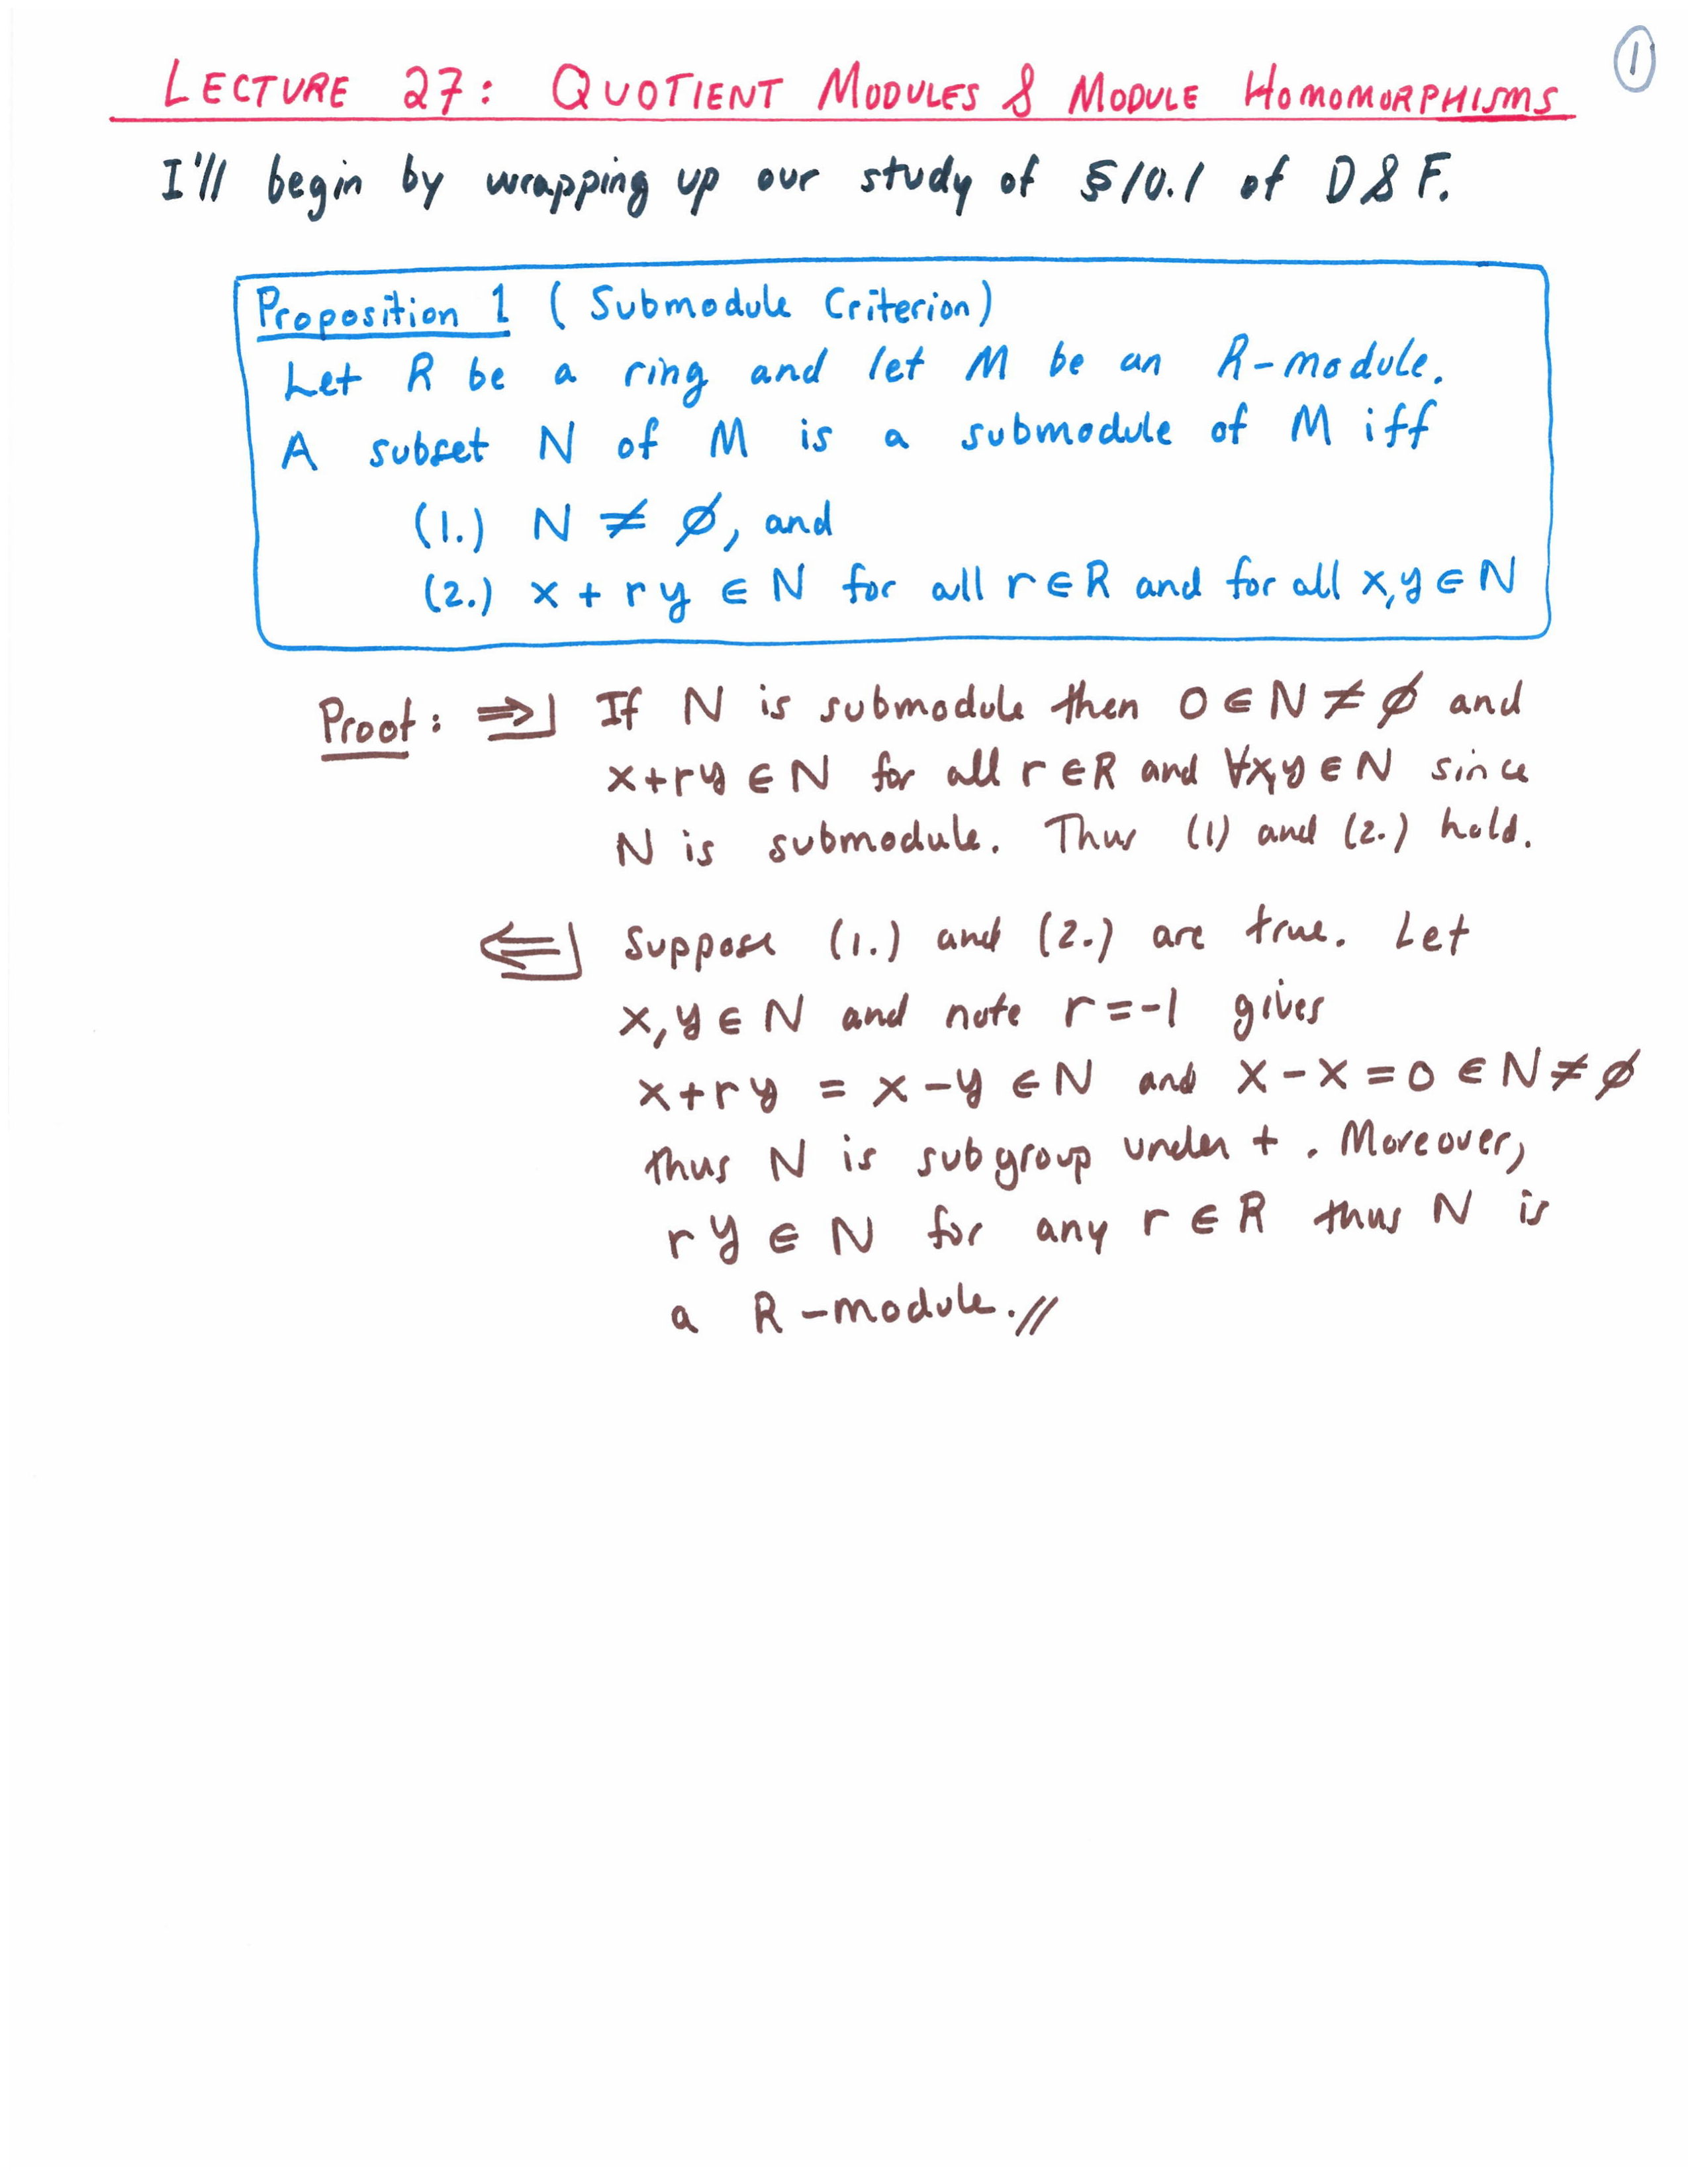 1
LECTURE 27: QUOTIENT MODULES & MODULE HOMOMORPHISMS
I'll begin by wrapping up our study of §10.1 of D&F.
Proposition 1 (Submodule Criterion)
Let R be a ring and let M be an R-module.
A subset N of M is a submodule of M iff
(1.) N ≠ ∅, and
(2.) x + ry ∈ N for all r ∈ R and for all x, y ∈ N
Proof: ⇒] If N is submodule then 0 ∈ N ≠ ∅ and
x+ry ∈ N for all r ∈ R and ∀x,y ∈ N since
N is submodule. Thus (1) and (2.) hold.
⇐] Suppose (1.) and (2.) are true. Let
x, y ∈ N and note r = -1 gives
x+ry = x-y ∈ N and x-x = 0 ∈ N ≠ ∅
thus N is subgroup under +. Moreover,
ry ∈ N for any r ∈ R thus N is
a R-module.//